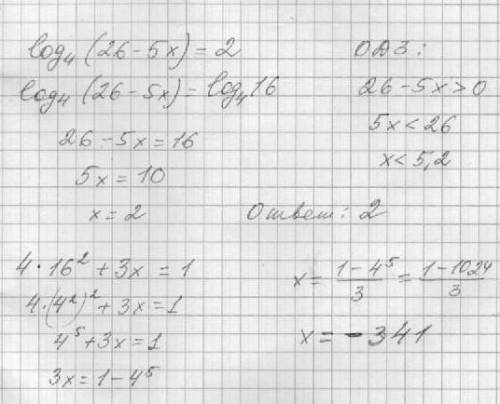 log₄(26-5x)=2
log₄(26-5x)=log₄16
26-5x=16
5x=10
x=2
ОДЗ:
26-5x>0
5x<26
x<5,2
Ответ: 2
4·16²+3x=1
4·(4²)²+3x=1
4⁵+3x=1
3x=1-4⁵
x=(1-4⁵)/3=(1-1024)/3
x=-341